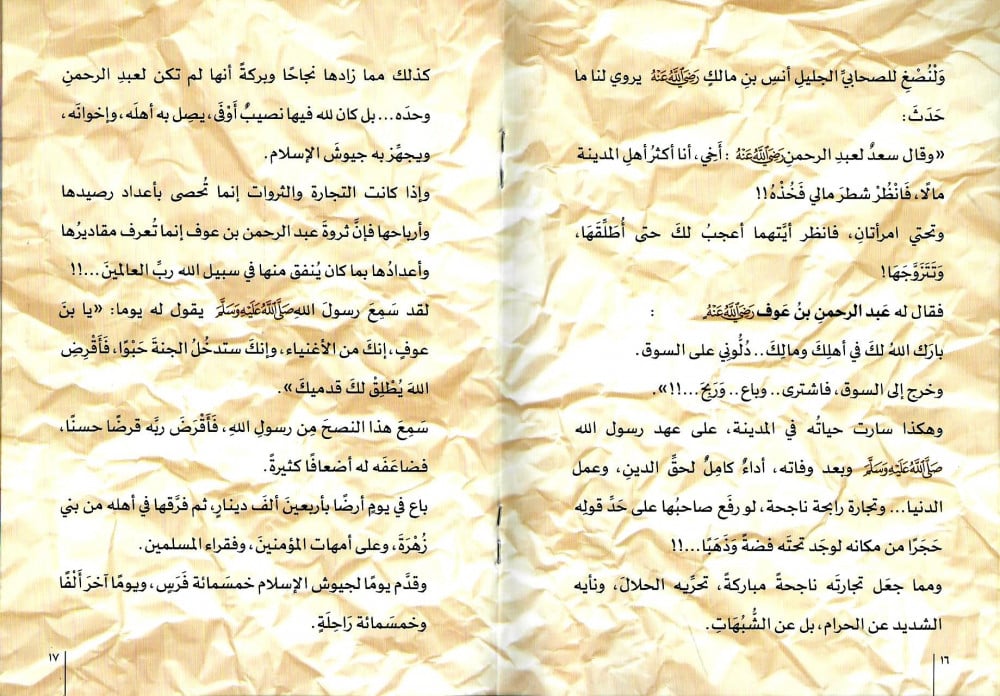 وَلْنُصْغِ للصحابيِّ الجليلِ أنسِ بنِ مالكٍ رَضِيَ اللَّهُ عَنْهُ يروي لنا ما
حَدَثَ:
«وقال سعدٌ لعبدِ الرحمنِ رَضِيَ اللَّهُ عَنْهُ: أَخِي، أنا أكثرُ أهلِ المدينة
مالًا، فَانْظُرْ شطرَ مالي فَخُذْهُ!!
وتحتي امرأتانِ، فانظر أيَّتهما أعجبُ لكَ حتى أُطَلِّقَهَا،
وَتَتَزَوَّجَهَا!
فقال له عَبد الرحمنِ بنُ عَوف رَضِيَ اللَّهُ عَنْهُ :
بارَك اللهُ لكَ في أهلِكَ ومالِكَ.. دُلُّونِي على السوق.
وخرج إلى السوق، فاشترى.. وباع.. وَرَبِحَ...!!».
وهكذا سارت حياتُه في المدينة، على عهد رسول الله
صَلَّى اللَّهُ عَلَيْهِ وَسَلَّمَ وبعد وفاته، أداءٌ كامِلٌ لحقِّ الدينِ، وعمل
الدنيا... وتجارة رابحة ناجحة، لو رفَع صاحبُها على حَدِّ قولِه
حَجَرًا من مكانه لوجَد تحتَه فضةً وَذَهَبًا...!!
ومما جعَل تجارتَه ناجحةً مباركةً، تحرِّيه الحلالَ، ونأيه
الشديد عن الحرام، بل عن الشُّبُهَاتِ.
١٦
كذلك مما زادها نجاحًا وبركةً أنها لم تكن لعبدِ الرحمنِ
وحدَه... بل كان لله فيها نصيبٌ أَوْفَى، يصِل به أهلَه، وإخوانَه،
ويجهِّز به جيوشَ الإسلام.
وإذا كانت التجارة والثروات إنما تُحصى بأعداد رصيدها
وأرباحها فإنَّ ثروةَ عبد الرحمن بن عوف إنما تُعرف مقاديرُها
وأعدادُها بما كان يُنفق منها في سبيل الله ربِّ العالمينَ...!!
لقد سَمِعَ رسولَ اللهِ صَلَّى اللَّهُ عَلَيْهِ وَسَلَّمَ يقول له يوما: «يا بنَ
عوفٍ، إنكَ من الأغنياء، وإنكَ ستدخُلُ الجنةَ حَبْوًا، فَأَقْرِضِ
اللهَ يُطْلِقْ لكَ قدميكَ».
سَمِعَ هذا النصحَ مِن رسولِ اللهِ، فَأَقْرَضَ ربَّه قرضًا حسنًا،
فضاعَفَه له أضعافًا كثيرةً.
باع في يومٍ أرضًا بأربعينَ ألفَ دينارٍ، ثم فرَّقها في أهله من بني
زُهْرَةَ، وعلى أمهات المؤمنينَ، وفقراء المسلمين.
وقدَّم يومًا لجيوش الإسلام خمسَمائة فَرَسٍ، ويومًا آخرَ أَلْفًا
وخمسَمائة رَاحِلَةٍ.
١٧